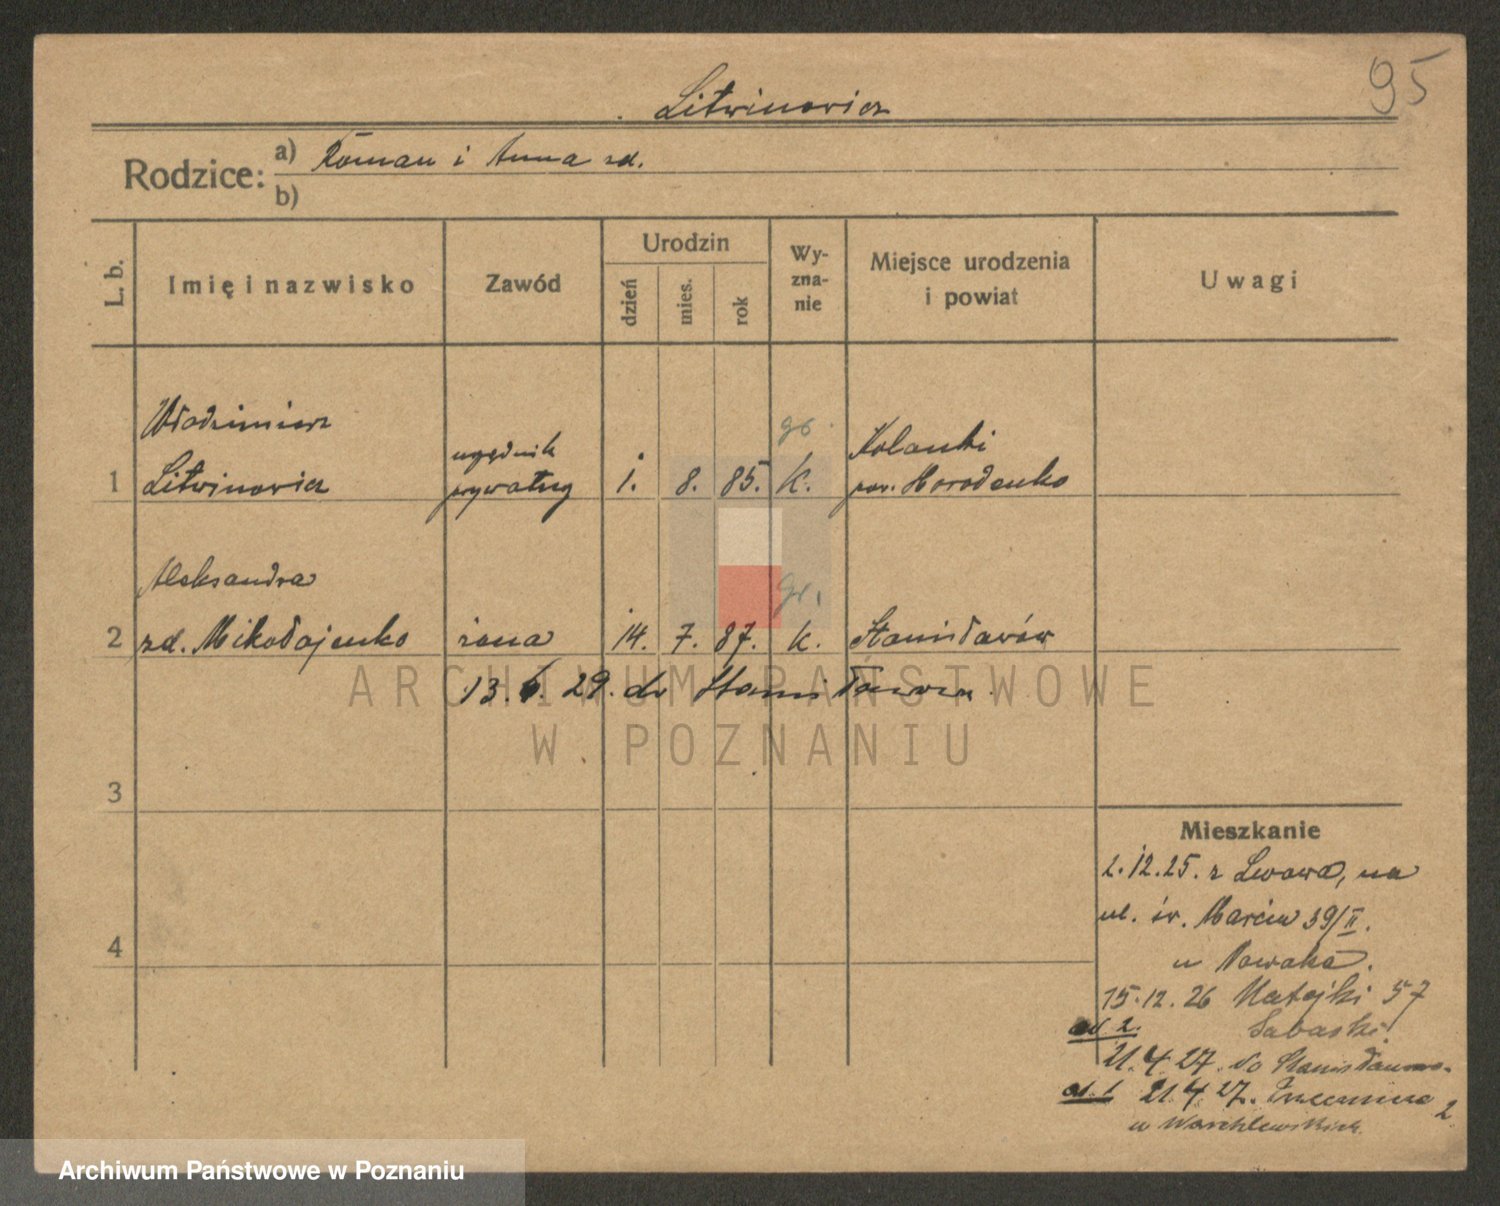 95
Litwinowicz
Rodzice: a) Roman i Anna zd.
b)
L. b.
Imię i nazwisko
Zawód
Urodzin
dzień
mies.
rok
Wy-
zna-
nie
Miejsce urodzenia
i powiat
Uwagi
Włodzimierz
urzędnik
gr.
Kolanki
1 Litwinowicz prywatny 1. 8. 85. k. pow. Horodenko
Aleksandra
gr.
2 zd. Mikołajenko żona 14. 7. 87. k. Stanisławów
13.6.29. do Stanisławowa.
ARCHIWUM PAŃSTWOWE
W POZNANIU
3
4
Mieszkanie
2.12.25. z Lwowa, na
ul. św. Marcin 39/II.
u Nowaka.
15.12.26 Matejki 57
ad 2. Sabaski.
21.4.27. do Stanisławowa.
ad. 1 21.4.27. 2
u
Archiwum Państwowe w Poznaniu